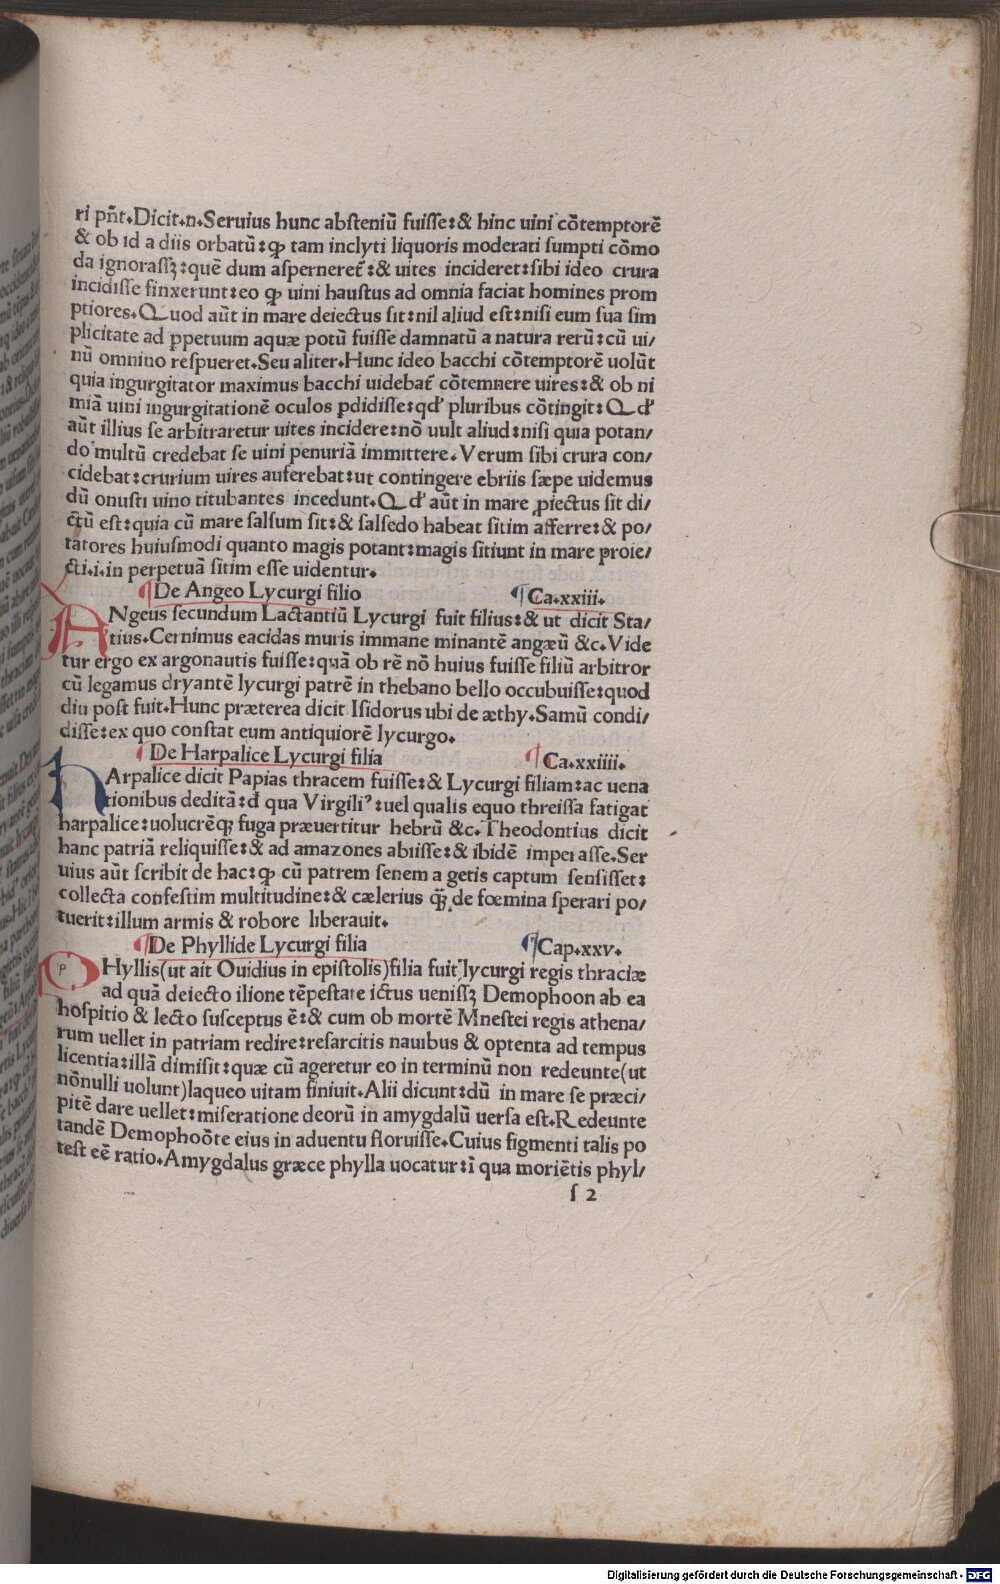 ri pñt.Dicit.n.Seruius hunc absteniū fuisse:& hinc uini cōtemptorē
& ob id a diis orbatū:ꝙ tam inclyti liquoris moderati sumpti cōmo
da ignorassꝫ:quē dum asperneret᷑:& uites incideret:sibi ideo crura
incidisse finxerunt:eo ꝙ uini haustus ad omnia faciat homines prom
ptiores.Quod aūt in mare deiectus sit:nil aliud est:nisi eum sua sim
plicitate ad ꝑpetuum aquæ potū fuisse damnatū a natura rerū:cū ui/
nū omnino respueret.Seu aliter.Hunc ideo bacchi cōtemptorē uolūt
quia ingurgitator maximus bacchi uidebat᷑ cōtemnere uires:& ob ni
miā uini ingurgitationē oculos pdidisse:qđ pluribus cōtingit:Qđ
aūt illius se arbitraretur uites incidere:nō uult aliud:nisi quia potan/
do multū credebat se uini penuriā immittere.Verum sibi crura con/
cidebat:crurium uires auferebat:ut contingere ebriis sæpe uidemus
dū onusti uino titubantes incedunt.Qđ aūt in mare ꝓiectus sit di/
ctū est:quia cū mare salsum sit:& salsedo habeat sitim afferre:& po/
tatores huiusmodi quanto magis potant:magis sitiunt in mare proie/
cti.i.in perpetuā sitim esse uidentur.
¶De Angeo Lycurgi filio ¶Ca.xxiii.
ANgeus secundum Lactantiū Lycurgi fuit filius:& ut dicit Sta/
tius.Cernimus eacidas muris immane minantē angæū &c.Vide
tur ergo ex argonautis fuisse:quā ob rē nō huius fuisse filiū arbitror
cū legamus dryantē lycurgi patrē in thebano bello occubuisse:quod
diu post fuit.Hunc præterea dicit Isidorus ubi de æthy.Samū condi/
disse:ex quo constat eum antiquiorē lycurgo.
¶De Harpalice Lycurgi filia ¶Ca.xxiiii.
HArpalice dicit Papias thracem fuisse:& Lycurgi filiam:ac uena
tionibus deditā:đ qua Virgiliꝰ:uel qualis equo threissa fatigat
harpalice:uolucrēqꝫ fuga præuertitur hebrū &c.Theodontius dicit
hanc patriā reliquisse:& ad amazones abiisse:& ibidē imperasse.Ser
uius aūt scribit de hac:ꝙ cū patrem senem a getis captum sensisset:
collecta confestim multitudine:& cælerius qꝫ̄ de fœmina sperari po/
tuerit:illum armis & robore liberauit.
¶De Phyllide Lycurgi filia ¶Cap.xxv.
PHyllis(ut ait Ouidius in epistolis)filia fuit lycurgi regis thraciæ
ad quā deiecto ilione tēpestate ictus uenissꝫ Demophoon ab ea
hospitio & lecto susceptus ē:& cum ob mortē Mnestei regis athena/
rum uellet in patriam redire:resarcitis nauibus & optenta ad tempus
licentia:illā dimisit:quæ cū ageretur eo in terminū non redeunte(ut
nōnulli uolunt)laqueo uitam finiuit.Alii dicunt:dū in mare se præci/
pitē dare uellet:miseratione deorū in amygdalū uersa est.Redeunte
tandē Demophoōte eius in aduentu floruisse.Cuius figmenti talis po
test eē ratio.Amygdalus græce phylla uocatur:ī qua moriētis phyl/
s 2
Digitalisierung gefördert durch die Deutsche Forschungsgemeinschaft - DFG